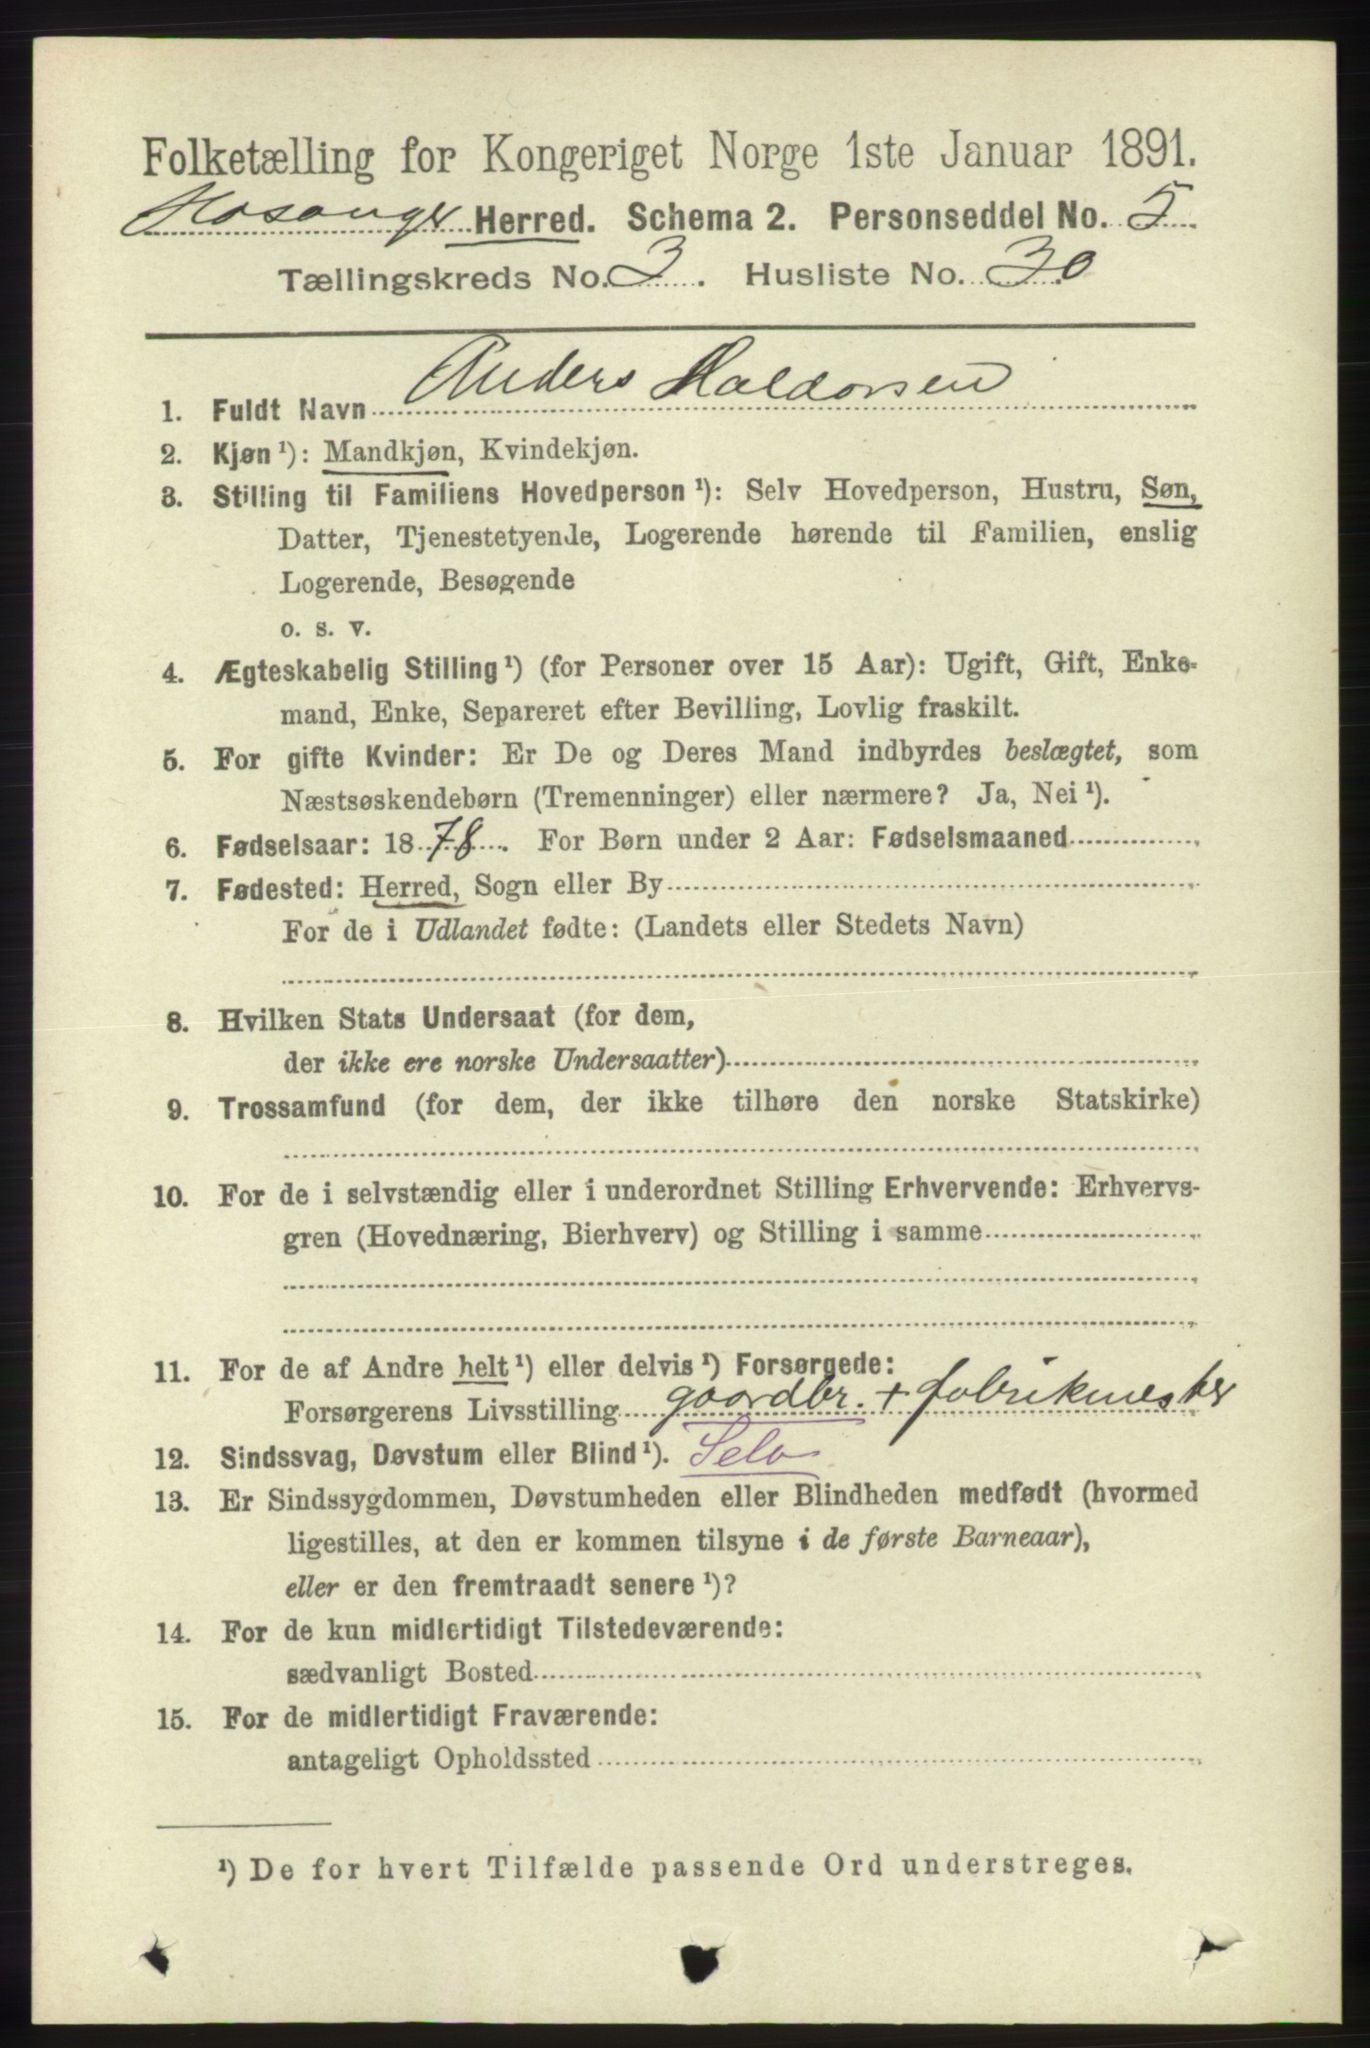 Folketælling for Kongeriget Norge 1ste Januar 1891.
Hosanger Herred. Schema 2. Personseddel No. 5
Tællingskreds No. 3. Husliste No. 30
1. Fuldt Navn Anders Haldorsen
2. Kjøn ¹): Mandkjøn, Kvindekjøn.
3. Stilling til Familiens Hovedperson ¹): Selv Hovedperson, Hustru, Søn,
Datter, Tjenestetyende, Logerende hørende til Familien, enslig
Logerende, Besøgende
o. s. v.
4. Ægteskabelig Stilling ¹) (for Personer over 15 Aar): Ugift, Gift, Enke-
mand, Enke, Separeret efter Bevilling, Lovlig fraskilt.
5. For gifte Kvinder: Er De og Deres Mand indbyrdes beslægtet, som
Næstsøskendebørn (Tremenninger) eller nærmere? Ja, Nei ¹).
6. Fødselsaar: 1878. For Børn under 2 Aar: Fødselsmaaned
7. Fødested: Herred, Sogn eller By
For de i Udlandet fødte: (Landets eller Stedets Navn)
8. Hvilken Stats Undersaat (for dem,
der ikke ere norske Undersaatter)
9. Trossamfund (for dem, der ikke tilhøre den norske Statskirke)
10. For de i selvstændig eller i underordnet Stilling Erhvervende: Erhvervs-
gren (Hovednæring, Bierhverv) og Stilling i samme
11. For de af Andre helt ¹) eller delvis ¹) Forsørgede:
Forsørgerens Livsstilling gaardbr. + fabrikmester
12. Sindssvag, Døvstum eller Blind ¹). Selv
13. Er Sindssygdommen, Døvstumheden eller Blindheden medfødt (hvormed
ligestilles, at den er kommen tilsyne i de første Barneaar),
eller er den fremtraadt senere ¹)?
14. For de kun midlertidigt Tilstedeværende:
sædvanligt Bosted
15. For de midlertidigt Fraværende:
antageligt Opholdssted
¹) De for hvert Tilfælde passende Ord understreges.